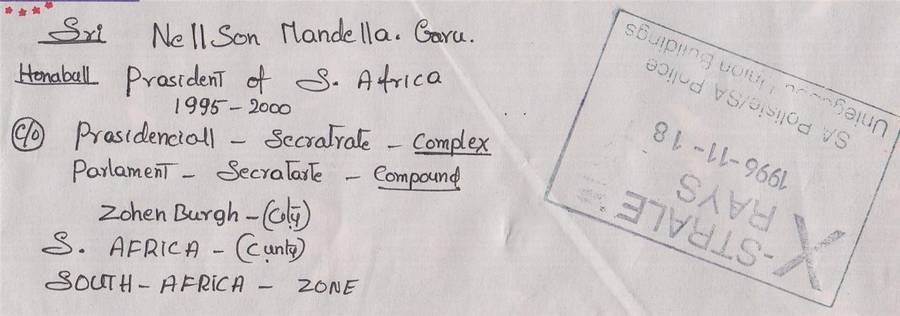 Sri Nellson Mandella. Garu.
Honaball Prasident of S. Africa
1995 - 2000
C/o Prasidenciall - Seccratrate - Complex
Parlament - Secratarte - Compound
Zohen Burgh - (City)
S. AFRICA - (Cunty)
SOUTH - AFRICA - ZONE
X-STRALE
RAYS
1996 -11- 18
SA Polisie/SA Police
Union Buildings